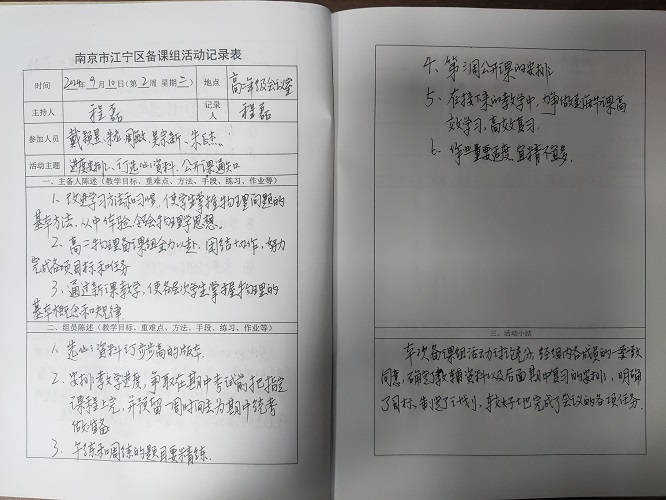 南京市江宁区备课组活动记录表
时间 2024年9月10日(第2周 星期二) 地点 高二年级会议室
主持人 程磊 记录人 程磊
参加人员 戴颖昱、朱 周敏、吴宗新、朱
活动主题 进度安排、订选心资料、公开课通知
一、主备人陈述(教学目标、重难点、方法、手段、练习、作业等)
1、改进学习方法和习惯，使学生掌握物理问题的
基本方法，从中体验、领会物理学思想。
2、高二物理备课组全力以赴、团结协作，努力
完成各项目标和任务
3、通过新课教学，使各层次学生掌握物理的
基本概念和规律
二、组员陈述(教学目标、重难点、方法、手段、练习、作业等)
1、选心资料订步步高的版本.
2、安排教学进度，争取在期中考试前把指定
课程上完，并预留一周时间去为期中统考
做准备
3、午练和周练的题目要精练.
4、第三周公开课的安排
5、在接下来的教学中，力争做到每节课高
效学习，高效复习.
6、作业量要适度，宜精不宜多.
三、活动小结
本次备课组活动讨论充分，经组内各成员的一致
同意，确定了教辅资料以及后面期中复习的安排，明确
了目标，制定了计划，较好地完成了会议的各项任务.